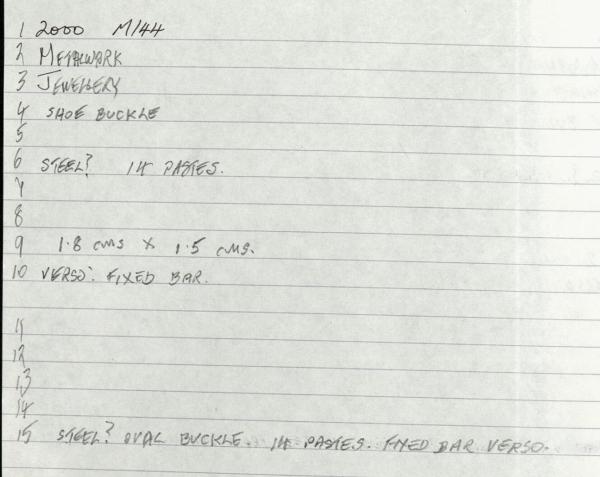 1 2000 M/44
2 METALWORK
3 JEWELLERY
4 SHOE BUCKLE
5
6 STEEL? 14 PASTES.
7
8
9 1.8 cms x 1.5 cms.
10 VERSO: FIXED BAR.
11
12
13
14
15 STEEL? OVAL BUCKLE. 14 PASTES. FIXED BAR VERSO.